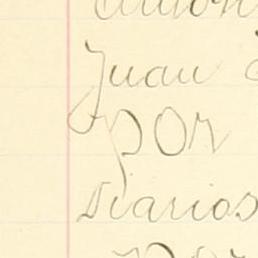 Juan
por
Diarios
por